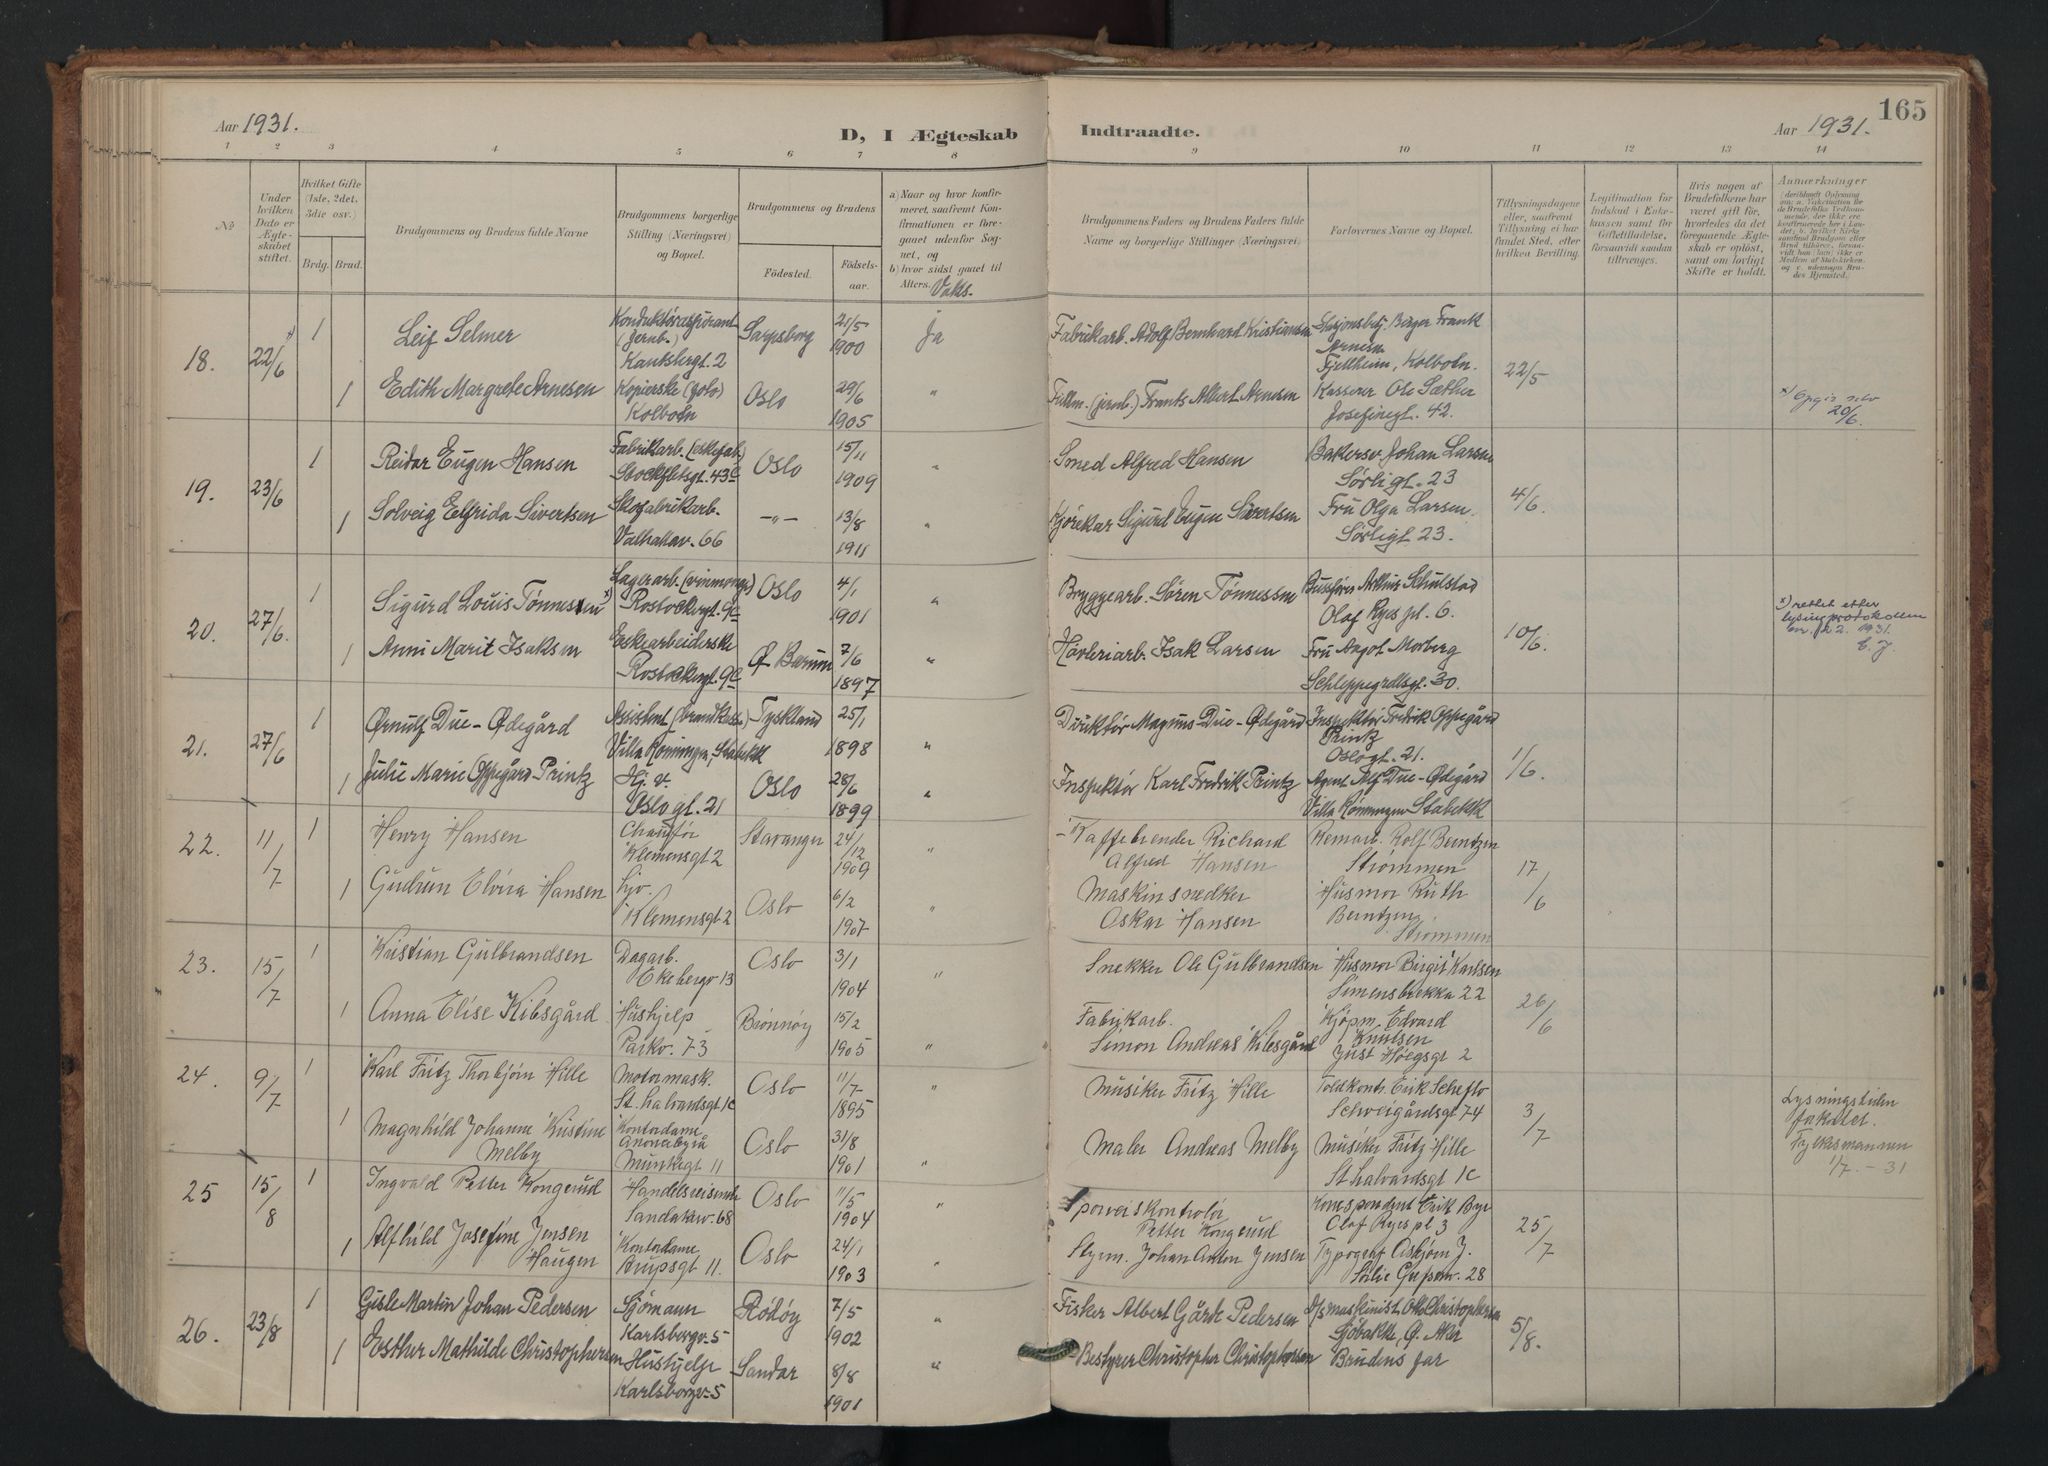 165
Aar 1931.
D, I Ægteskab Indtraadte.
Aar 1931.
1 2 3 4 5 6 7 8 9 10 11 12 13 14
No.
Under hvilken Dato er Ægteskabet stiftet.
Hvilket Gifte (1ste, 2det, 3die osv.)
Brdg. Brud.
Brudgommens og Brudens fulde Navne
Brudgommens borgerlige Stilling (Næringsvei) og Bopæl.
Brudgommens og Brudens
Fødested. Fødselsaar.
a) Naar og hvor konfirmeret, saafremt Konfirmationen er foregaaet udenfor Sognet, og
b) hvor sidst gaaet til Alters. Vaks.
Brudgommens Faders og Brudens Faders fulde Navne og borgerlige Stillinger (Næringsvei).
Forlovernes Navne og Bopæl.
Tillysningsdagene eller, saafremt Tillysning ei har fundet Sted, efter hvilken Bevilling.
Legitimation for Indskud i Enkekassen samt for Giftetilladelse, forsaavidt saadan tiltrænges.
Hvis nogen af Brudefolkene har været gift før, hvorledes da det foregaaende Ægteskab er opløst, samt om lovligt Skifte er holdt.
Anmærkninger
18. 22/6 1 Leif Selmer Konduktøraspirant (jernb.) Kantsbergt. 2 Sarpsborg 21/5 1900 Ja Fabrikarb. Adolf Bernhard Kristiansen Stasjonsbetj. Birger Frank Arnesen Fjellheim, Kolbotn. 22/5
1 Edith Margrete Arnesen Kopierske (foto) Kolbotn Oslo 29/6 1905 " Fullm. (jernb.) Frants Albert Arnesen Kasserer Ole Sæther Josefinegt. 42. 20/6.
19. 23/6 1 Reidar Eugen Hansen Fabrikarb. (eskefab.) Stockfletsgt. 43c Oslo 15/11 1909 " Smed Alfred Hansen Bakersv. Johan Larsen Sørligt. 23 4/6.
1 Solveig Elfrida Sivertsen Skofabrikarb. Valhallav. 66 —"— 13/8 1911 " Kjørekar Sigurd Eugen Sivertsen Fru Olga Larsen. Sørligt. 23.
20. 27/6. 1 Sigurd Louis Tønnessen x) Lagerarb. (vinmonop.) Rostockergt. 9c Oslo 4/1 1901 " Bryggearb. Søren Tønnessen Bussfører Arthur Schulstad Olaf Ryes pl. 6. 10/6. x) rettet efter lysingsprotokollen nr. 22. 1931. E. J.
1 Anni Marit Isaksen Eskearbeiderske Rostockergt. 9c Ø. Bærum 7/6 1897 " Høvleriarb. Isak Larsen Fru Aagot Morberg Schleppegrellsgt. 30.
21. 27/6 1 Ørnulf Due-Ødegård Assistent (brandkasse) Villa Rønningen, Stabekk Tyskland 25/1 1898 " Direktør Magnus Due-Ødegård Inspektør Fredrik Oppegård Printz Oslogt. 21. 1/6.
1 Julie Marie Oppegård Printz Hj. v. Oslogt. 21 Oslo 28/6 1899 " Inspektør Karl Fredrik Printz Agent Alf Due-Ødegård Villa Rønningen Stabekk
22. 11/7 1 Henry Hansen Chauffør Klemensgt 2 Stavanger 24/12 1909 " Kaffebrender Richard Alfred Hansen Remarb. Rolf Berntzen Strømmen 17/6
1 Gudrun Elvira Hansen hjv. Klemensgt 2 Oslo 6/2 1907 " Maskinsnedker Oskar Hansen Husmor Ruth Berntzen, Strømmen
23. 15/7 1 Kristian Gulbrandsen Dagarb. Ekebergv 13 Oslo 3/1 1904 " Snekker Ole Gulbrandsen Husmor Birgit Karlsen Simensbrekka 22 26/6
1 Anna Elise Kibsgård Hushjelp Parkv. 73 Brønnøy 15/2 1905 " Fabrikarb. Simon Andreas Kibsgård Kjøpm. Edvard Knutsen Just Høegsgt 2
24. 9/7 1 Karl Fritz Thorbjørn Hille Motormask. St. halvardsgt 1c Oslo 11/7 1895 " Musiker Fritz Hille Toldkontr. Erik Scheflo Schweigårdsgt 74 3/7 Lysningstiden frafallet. Fylkesmannen 1/7. - 31
1 Magnhild Johanne Kristine Melby Kontordame Munkegt 11 Oslo 31/8 1901 " Maler Andreas Melby Musiker Fritz Hille St halvardsgt 1c
25 15/8 1 Ingvald Petter Kongerud Handelsreisende Sandakerv. 68 Oslo 11/5 1904 " Sporveiskontrolør Petter Kongerud Korrespondent Erik Bye Olaf Ryes pl 3 25/7
1 Alfhild Josefine Jensen Haugen Kontordame Krupsgt 11. Oslo 24/1 1903 " Styrm. Johan Anton Jensen Typograf Asbjørn J. 28
26. 23/8 1 Gisle Martin Johan Pedersen Sjømann Karlsborgv. 5 Rødøy 7/5 1902 " Fisker Albert Gårde Pedersen D/s maskinist Otto Christophersen Sjøbakke, Ø. Aker 5/8.
1 Esther Mathilde Christophersen Hushjelp Karlsborgv. 5 Sandar 8/8 1901 " Bestyrer Christopher Christophersen Brudens far